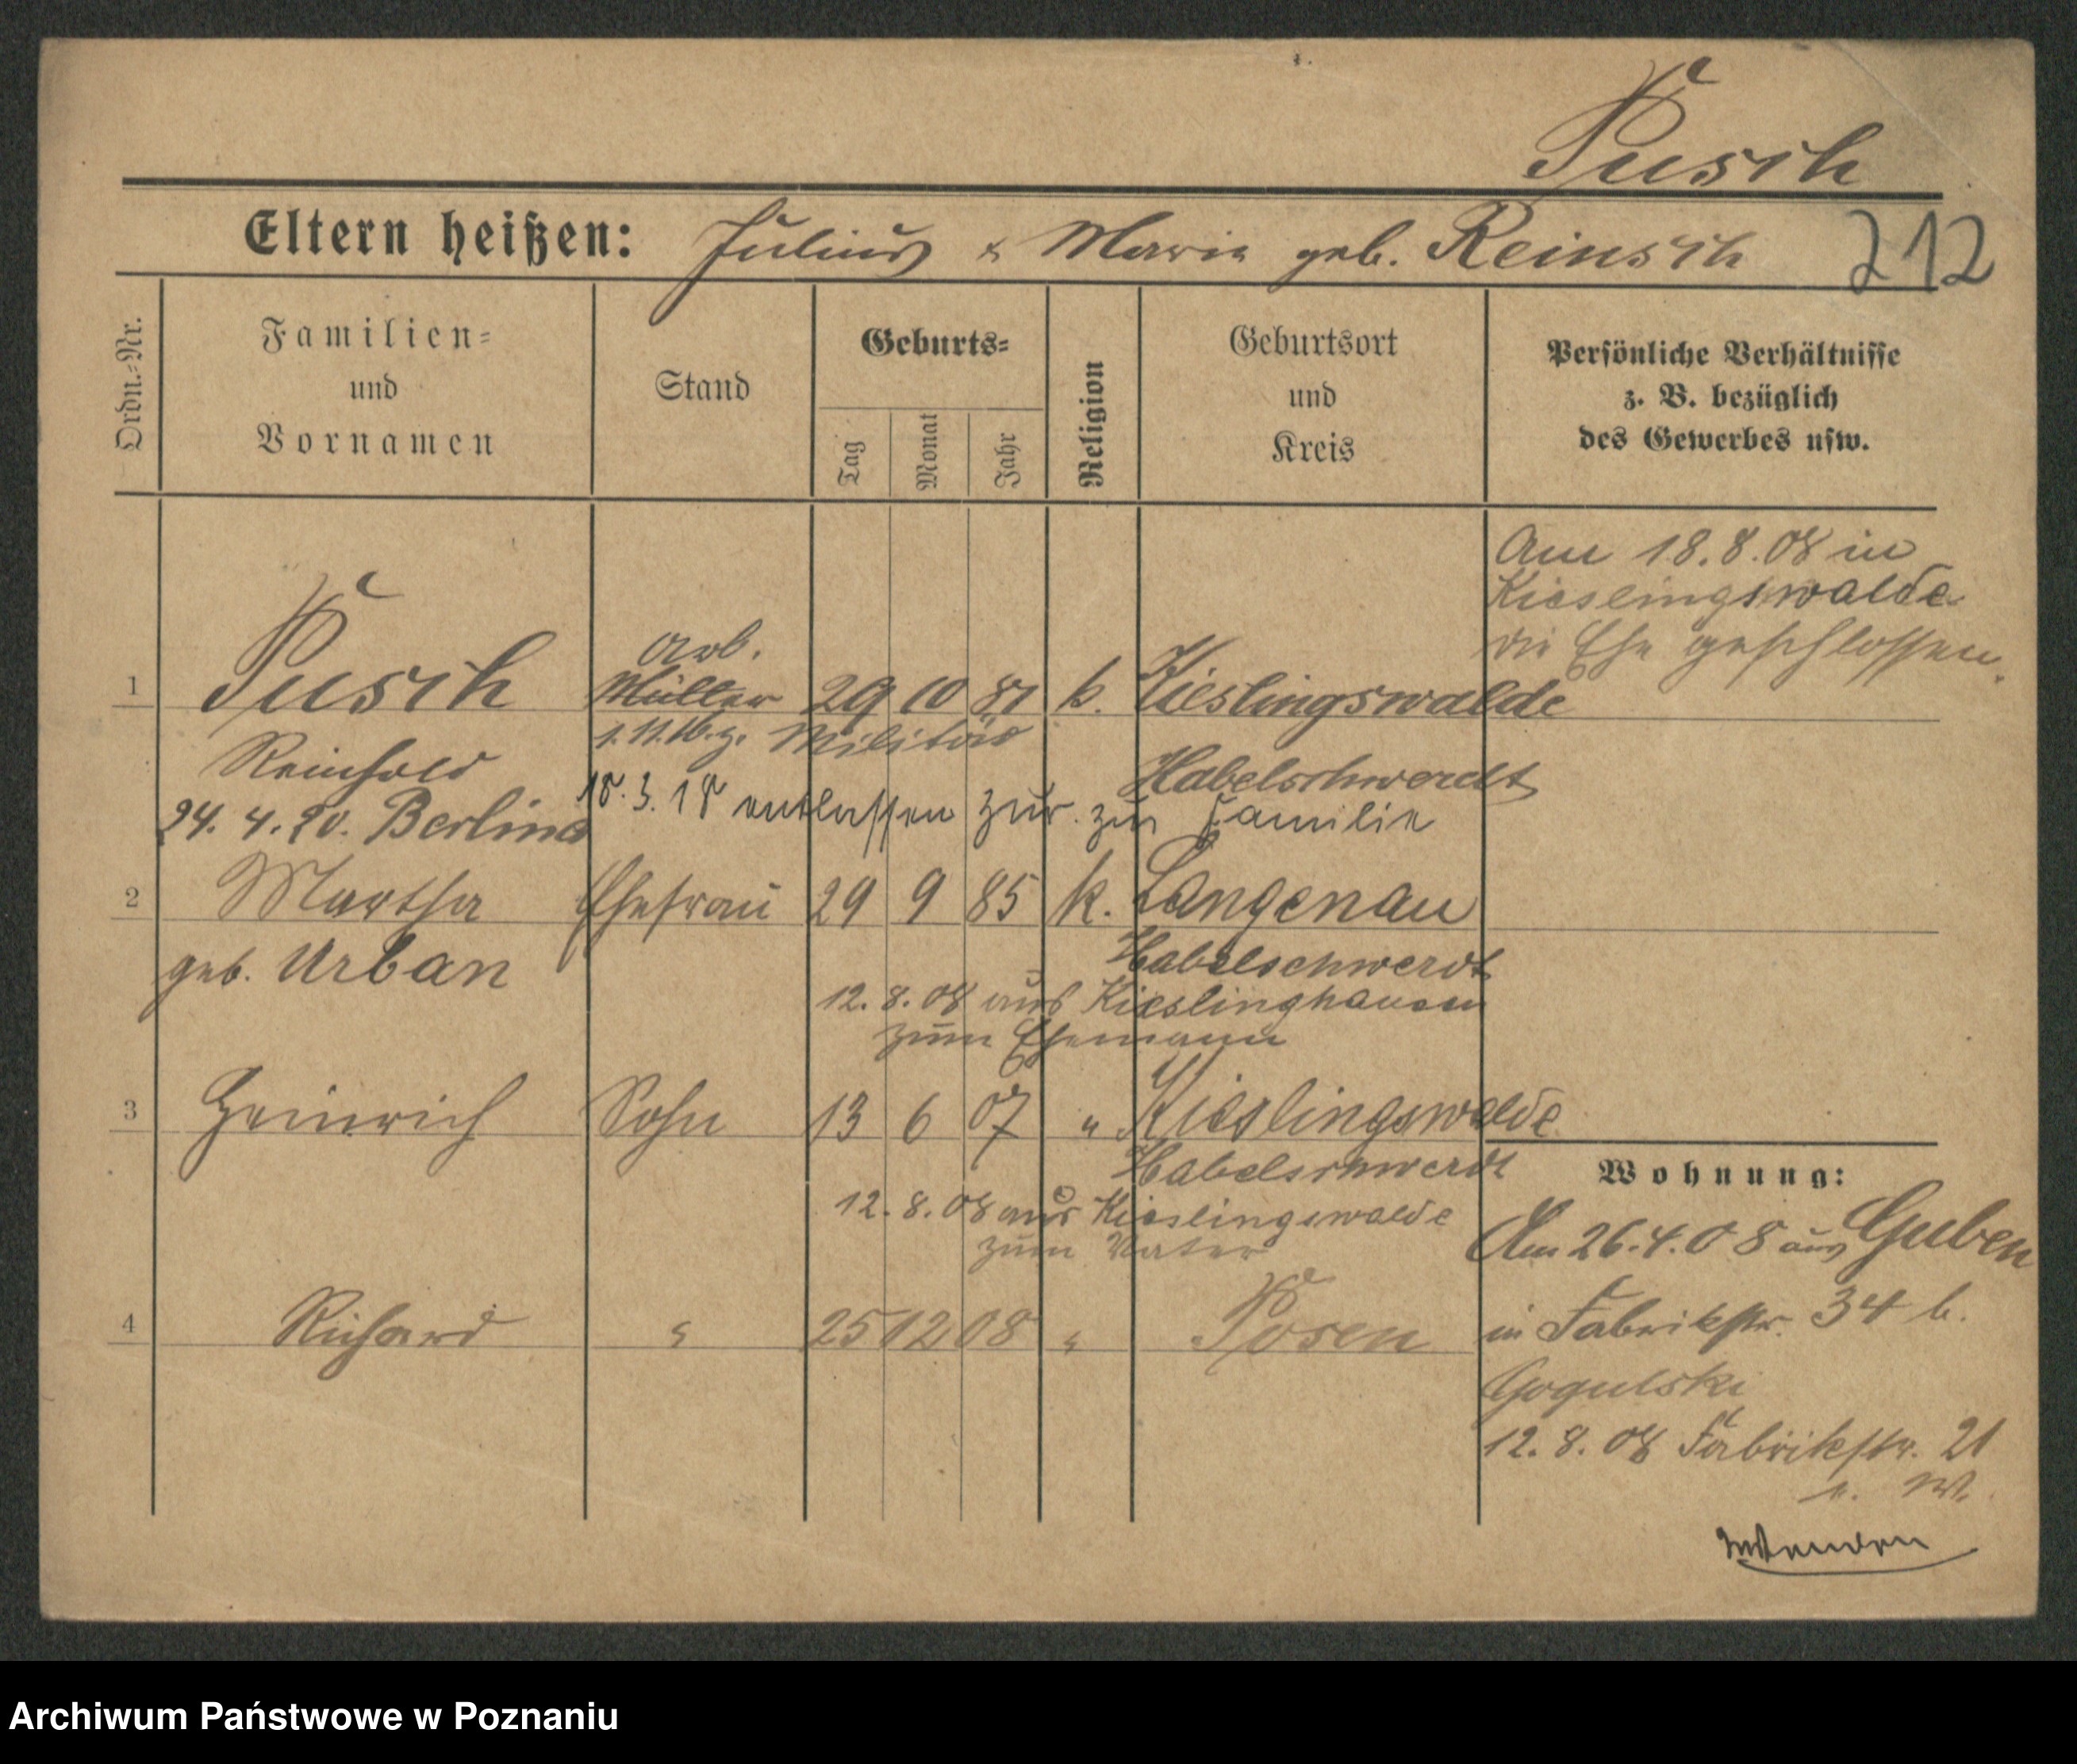 Pusch
Eltern heißen: Julius & Maria geb. Reinsch
212
Ordn.-Nr.
Familien-
und
Vornamen
Stand
Geburts-
Tag
Monat
Jahr
Religion
Geburtsort
und
Kreis
Persönliche Verhältnisse
z. B. bezüglich
des Gewerbes usw.
Am 18.8.08 in
Kieslingswalde
die Ehe geschlossen.
Arb.
1 Pusch Müller 29 10 81 k. Kieslingswalde
1.11.16. z. Militär
Reinhold
Habelschwerdt
18.3.18 entlassen zur. zur Familie
24.4.20. Berlin
2 Martha Ehefrau 29 9 85 k. Langenau
geb. Urban
Habelschwerdt
12.8.08 aus Kieslinghausen
zum Ehemann
3 Heinrich Sohn 13 6 07 " Kieslingswalde
Habelschwerdt
12.8.08 aus Kieslingswalde
zum Vater
4 Richard " 25 12 08 " Posen
Wohnung:
Am 26.4.08 aus Guben
in Fabrikstr. 34 b.
Gogulski
12.8.08 Fabrikstr. 21
Wenden
Archiwum Państwowe w Poznaniu